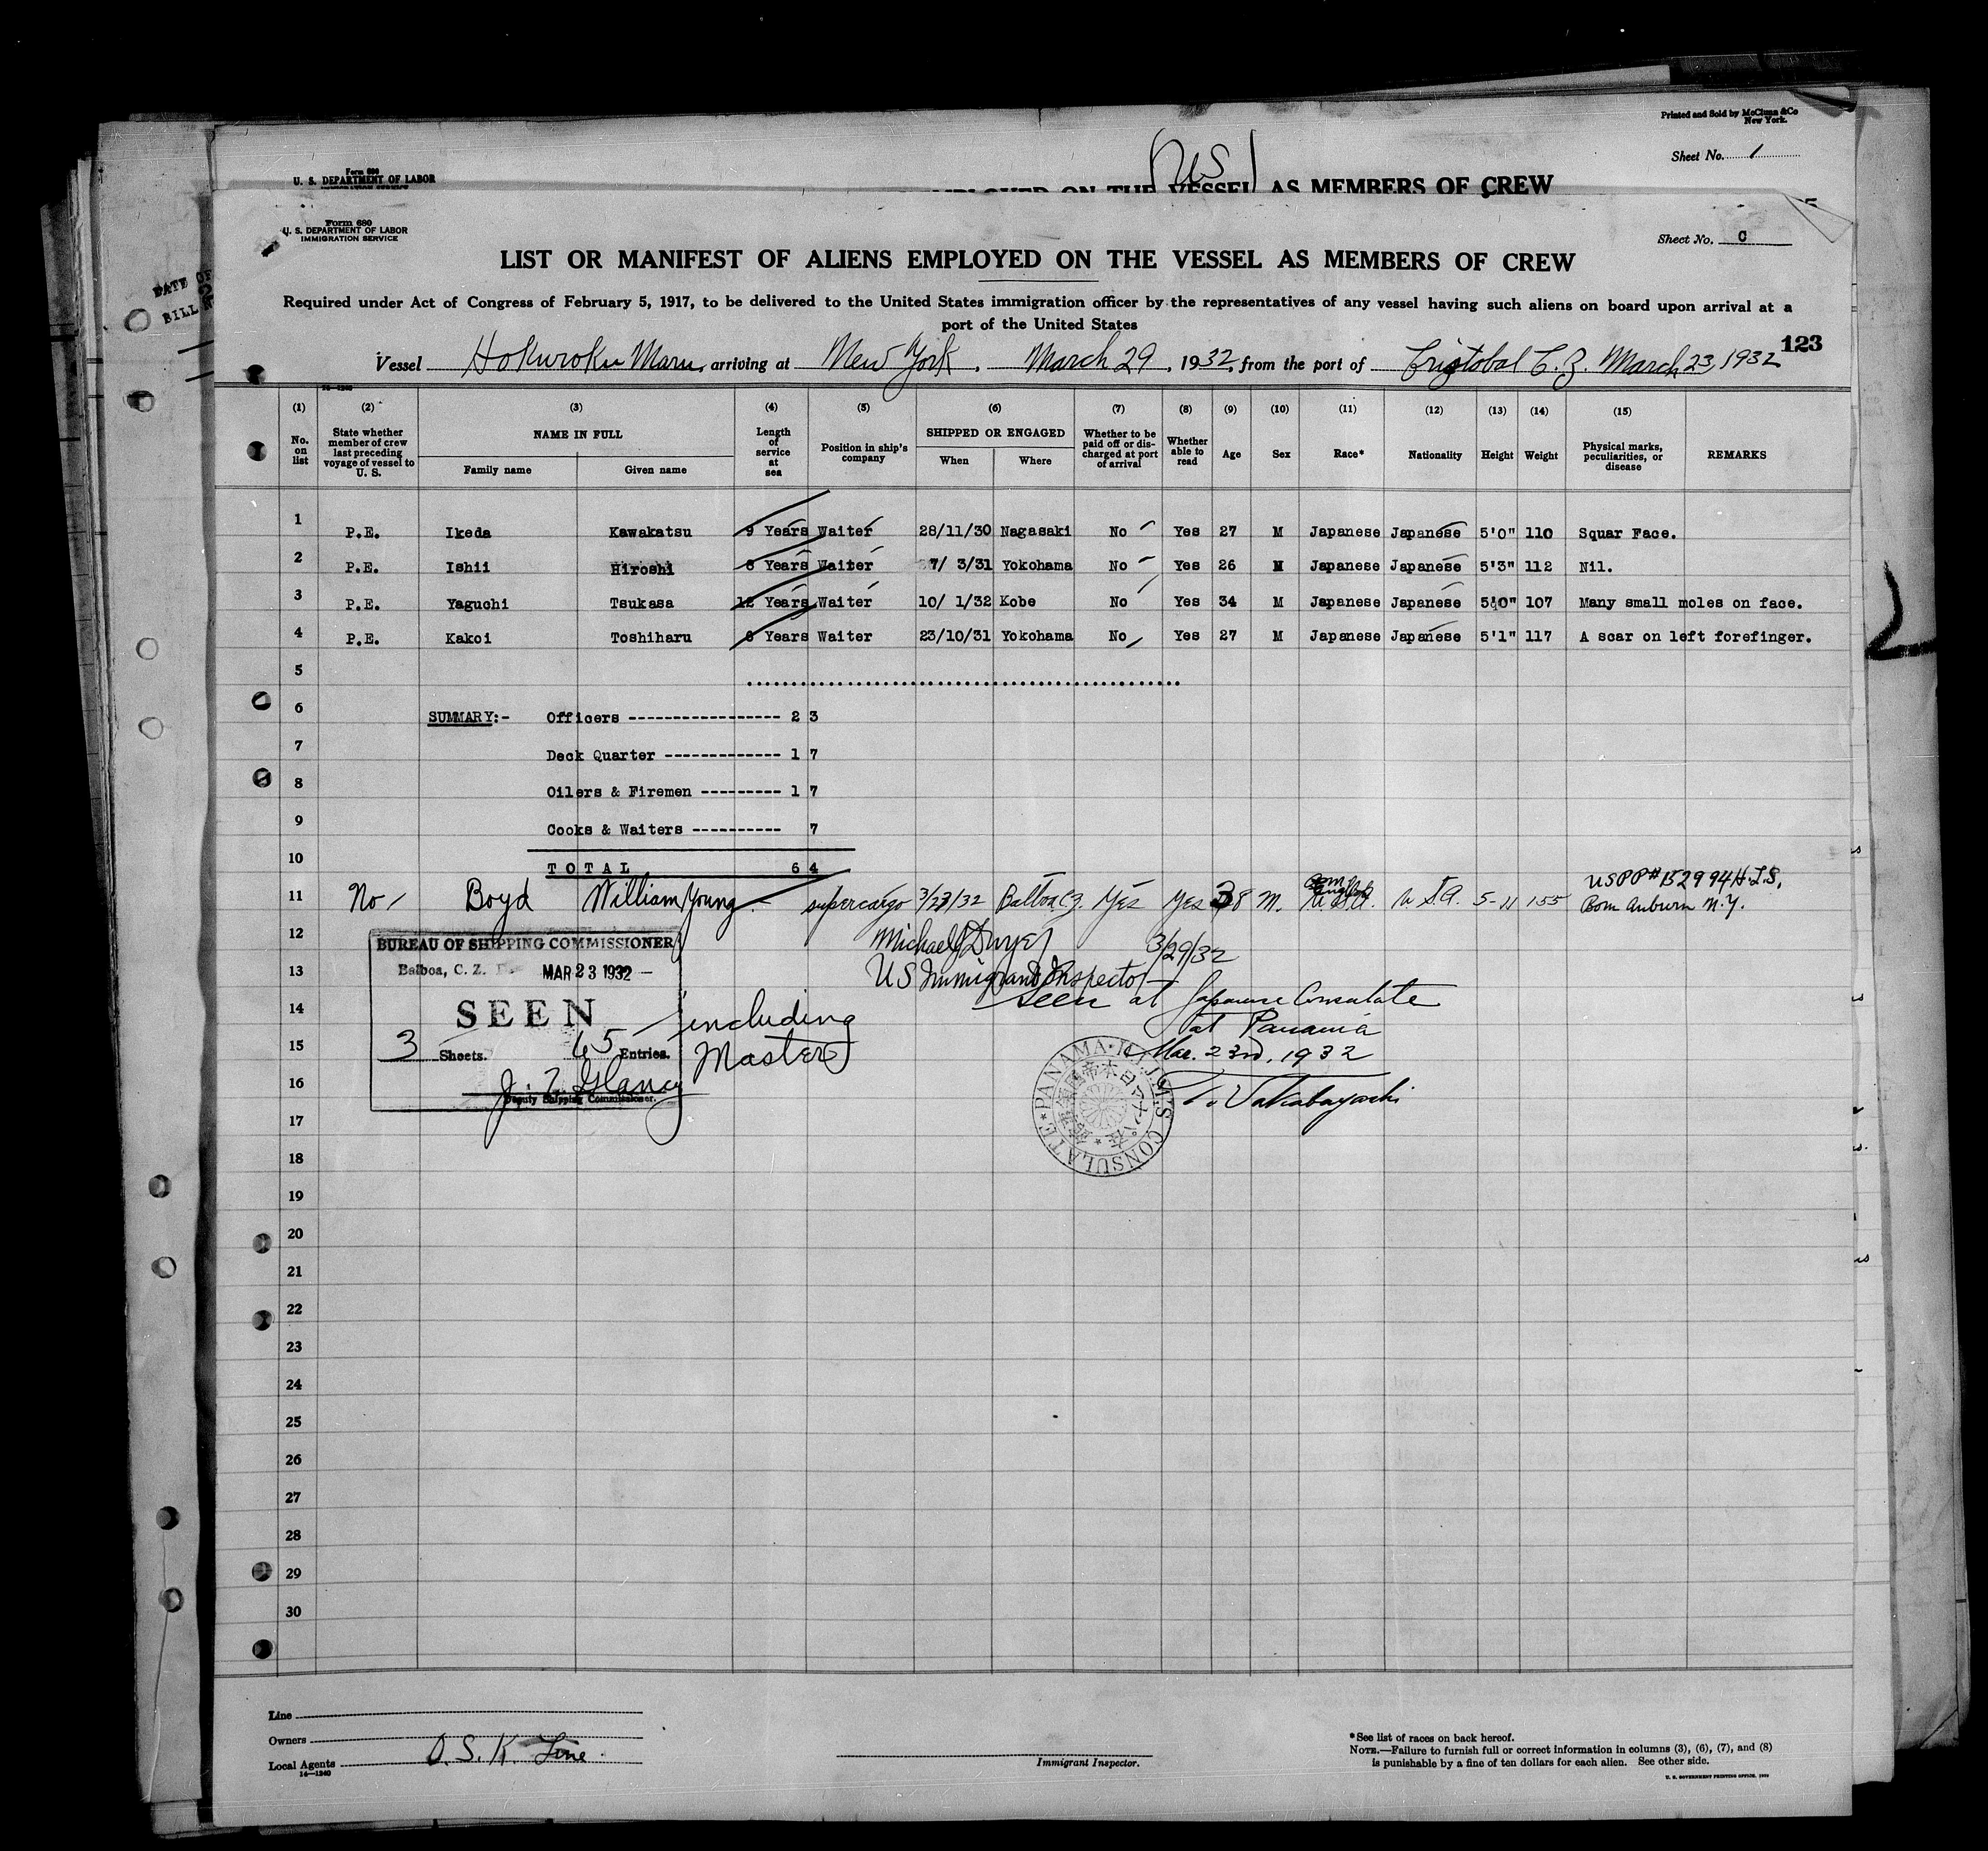 Printed and Sold by McClunn & Co
New York.
Sheet No. 1
Form 680
U. S. DEPARTMENT OF LABOR
IMMIGRATION SERVICE
EMPLOYED ON THE VESSEL AS MEMBERS OF CREW
DATE OF
BILL
Form 680
U. S. DEPARTMENT OF LABOR
IMMIGRATION SERVICE
Sheet No. C
LIST OR MANIFEST OF ALIENS EMPLOYED ON THE VESSEL AS MEMBERS OF CREW
Required under Act of Congress of February 5, 1917, to be delivered to the United States immigration officer by the representatives of any vessel having such aliens on board upon arrival at a
port of the United States
123
Vessel Hokuroku Maru, arriving at New York, March 29, 1932, from the port of Cristobal C.Z. March 23, 1932
14-1240
(1) (2) (3) (4) (5) (6) (7) (8) (9) (10) (11) (12) (13) (14) (15)
No. on list State whether member of crew last preceding voyage of vessel to U. S. NAME IN FULL Family name Given name Length of service at sea Position in ship's company SHIPPED OR ENGAGED When Where Whether to be paid off or discharged at port of arrival Whether able to read Age Sex Race* Nationality Height Weight Physical marks, peculiarities, or disease REMARKS
1 P.E. Ikeda Kawakatsu 9 Years Waiter 28/11/30 Nagasaki No Yes 27 M Japanese Japanese 5'0" 110 Squar Face.
2 P.E. Ishii Hiroshi 8 Years Waiter 7/ 3/31 Yokohama No Yes 26 M Japanese Japanese 5'3" 112 Nil.
3 P.E. Yaguchi Tsukasa 12 Years Waiter 10/ 1/32 Kobe No Yes 34 M Japanese Japanese 5'0" 107 Many small moles on face.
4 P.E. Kakoi Toshiharu 6 Years Waiter 23/10/31 Yokohama No Yes 27 M Japanese Japanese 5'1" 117 A scar on left forefinger.
5
6 SUMMARY:- Officers ----------------- 2 3
7 Deck Quarter ------------- 1 7
8 Oilers & Firemen --------- 1 7
9 Cooks & Waiters ---------- 7
10 T O T A L 6 4
11 No Boyd William Young supercargo 3/23/32 Balboa, C.Z. Yes Yes 38 M. U.S.A. U.S.A. 5-11 155 USPP# 152994 H.I.S.
Born Auburn N.Y.
12 Michael J Dwyer 3/29/32
13 US Immigrant Inspector
14 Seen at Japanese Consulate
at Panama
15 Mar. 23rd, 1932
16 T. Wakabayashi
BUREAU OF SHIPPING COMMISSIONER
Balboa, C. Z. MAR 23 1932
SEEN
3 Sheets. 65 Entries.
Deputy Shipping Commissioner.
including
Master
PANAMA H.I.J.M'S CONSULATE
17
18
19
20
21
22
23
24
25
26
27
28
29
30
Line
Owners
Local Agents O.S.K. Line
14-1240
Immigrant Inspector.
*See list of races on back hereof.
NOTE.—Failure to furnish full or correct information in columns (3), (6), (7), and (8)
is punishable by a fine of ten dollars for each alien. See other side.
U. S. GOVERNMENT PRINTING OFFICE